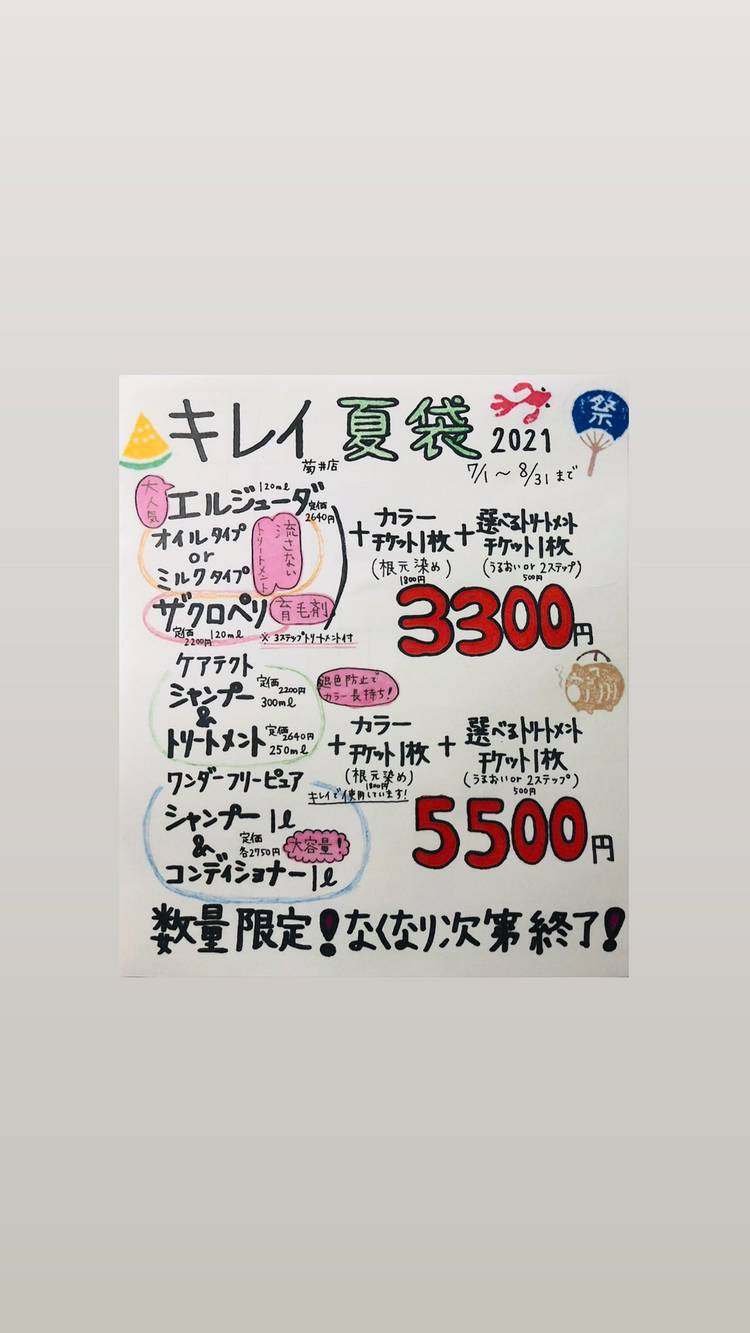 キレイ 夏袋 2021
菊井店
7/1〜8/31まで
祭
大人気
エルジューダ 120ml
定価2640円
オイルタイプ
or
ミルクタイプ
流さない
トリートメント
ザクロペリ 育毛剤
定価2200円 120ml
※3ステップトリートメント付
+カラーチケット1枚
(根元染め)
1800円
+選べるトリートメントチケット1枚
(うるおい or 2ステップ)
500円
3300円
ケアテクト
シャンプー 定価2200円 300ml
&
トリートメント 定価2640円 250ml
退色防止で
カラー長持ち!
ワンダーフリーピュア
キレイで使用しています!
シャンプー 1l
&
定価各2750円
大容量!
コンディショナー 1l
+カラーチケット1枚
(根元染め)
1800円
+選べるトリートメントチケット1枚
(うるおい or 2ステップ)
500円
5500円
数量限定!なくなり次第終了!